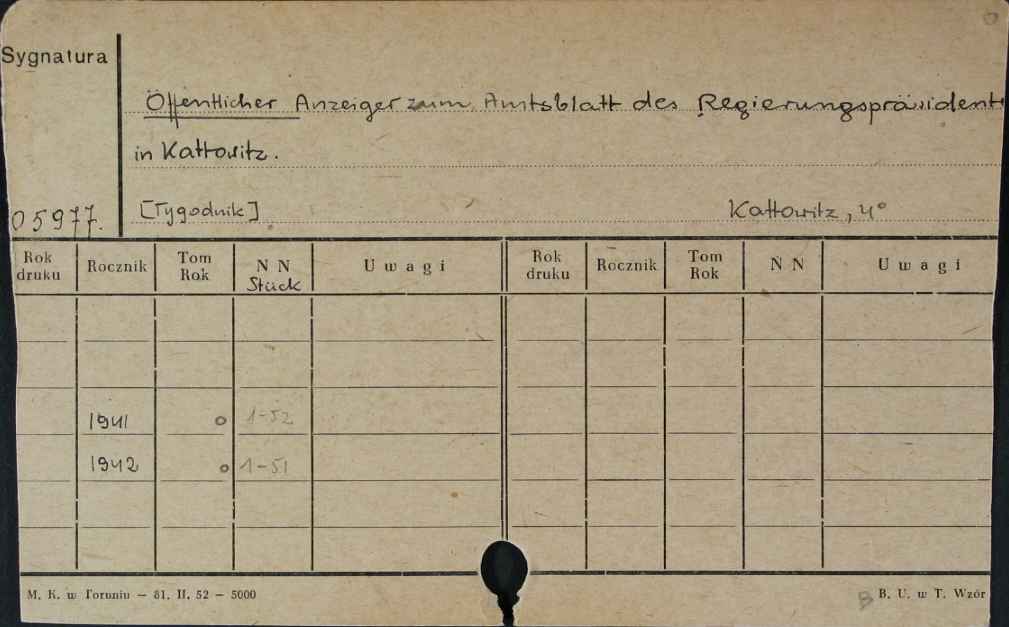 Sygnatura
Öffentlicher Anzeiger zum Amtsblatt des Regierungspräsidente
in Kattowitz.
05977. [Tygodnik] Kattowitz, 4°
Rok druku Rocznik Tom Rok N N Stück Uwagi Rok druku Rocznik Tom Rok N N Uwagi
1941 o 1-52
1942 o 1-51
M. K. w Toruniu — 81. II. 52 — 5000 B. U. w T. Wzór